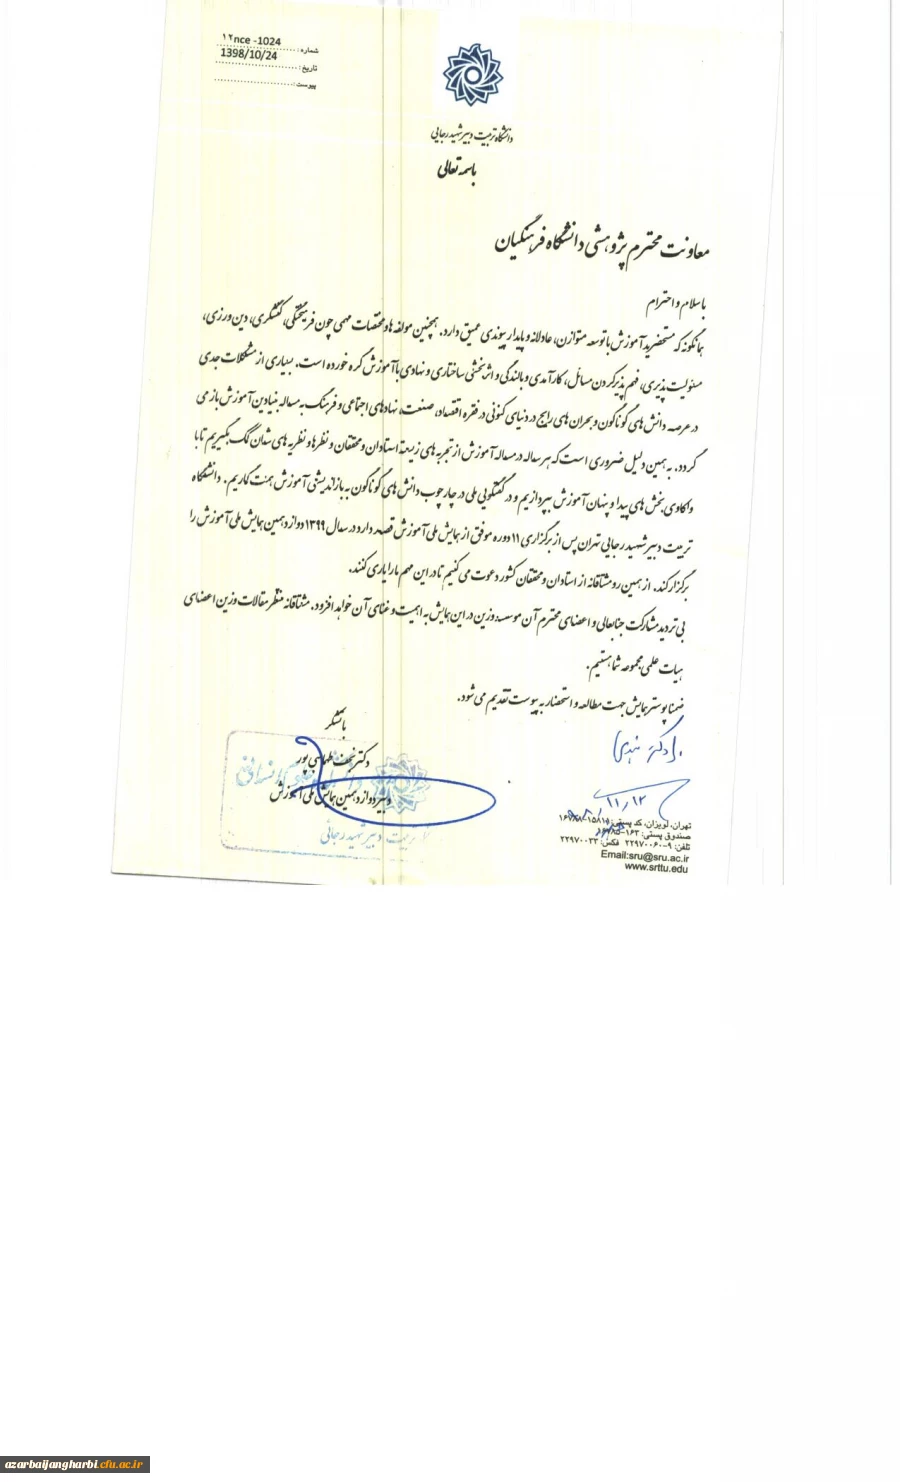 شماره: ۱۲nce -1024
تاریخ: 1398/10/24
پیوست:
دانشگاه تربیت دبیر شهید رجایی
باسمه تعالی
معاونت محترم پژوهشی دانشگاه فرهنگیان
باسلام و احترام
همانگونه که مستحضرید آموزش با توسعه متوازن، عادلانه و پایدار پیوندی عمیق دارد. همچنین مولفه ها و مختصات مهمی چون فرهیختگی، کنشگری، دین ورزی،
مسئولیت پذیری، فهم پذیر کردن مسائل، کارآمدی و بالندگی و اثربخشی ساختاری و نهادی با آموزش گره خورده است. بسیاری از مشکلات جدی
در عرصه دانش های گوناگون و بحران های رایج در دنیای کنونی در فقره اقتصاد، صنعت، نهادهای اجتماعی و فرهنگ به مساله بنیادین آموزش باز می
گردد. به همین دلیل ضروری است که هر ساله در مساله آموزش از تجربه های زیسته استادان و محققان و نظرها و نظریه های شان کمک بگیریم تا با
واکاوی بخش های پیدا و پنهان آموزش بپردازیم و در گفتگویی ملی در چارچوب دانش های گوناگون به بازاندیشی آموزش همت گماریم. دانشگاه
تربیت دبیر شهید رجایی تهران پس از برگزاری ۱۱ دوره موفق از همایش ملی آموزش قصد دارد در سال ۱۳۹۹ دوازدهمین همایش ملی آموزش را
برگزار کند. از همین رو مشتاقانه از استادان و محققان کشور دعوت می کنیم تا در این مهم ما را یاری کنند.
بی تردید مشارکت جنابعالی و اعضای محترم آن موسسه وزین در این همایش به اهمیت و غنای آن خواهد افزود. مشتاقانه منتظر مقالات وزین اعضای
هیات علمی مجموعه شما هستیم.
ضمنا پوستر همایش جهت مطالعه و استحضار به پیوست تقدیم می شود.
باتشکر
دکتر
پور
دبیر دوازدهمین همایش ملی آموزش
تربیت دبیر شهید رجائی
دکتر
۱۱/۱۲
تهران، لویزان، کد پستی:
صندوق پستی:
تلفن: ۹-۲۲۹۷۰۰۶۰ فکس: ۲۲۹۷۰۰۳۳
Email:sru@sru.ac.ir
www.srttu.edu
azarbaijangharbi.cfu.ac.ir